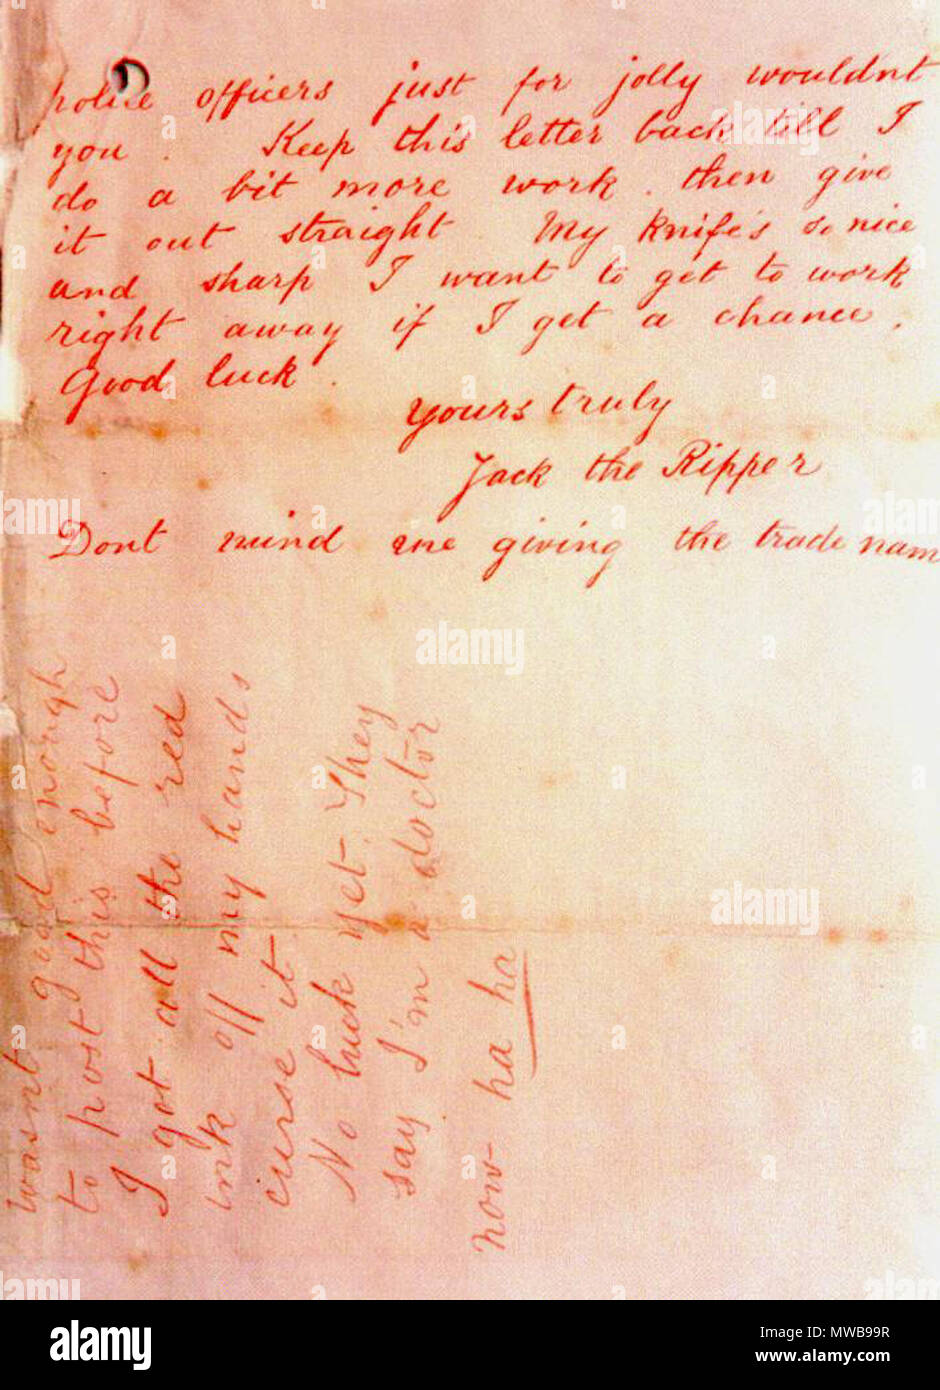 police officers just for jolly wouldnt
you . Keep this letter back till I
do a bit more work . then give
it out straight . My knife's so nice
and sharp I want to get to work
right away if I get a chance .
Good luck .
yours truly
Jack the Ripper
Dont mind me giving the trade nam
wasnt good enough
to post this before
I got all the red
ink off my hands
curse it
No luck yet. They
say I'm a doctor
now ha ha
alamy
alamy
Image ID: MWB99R
www.alamy.com